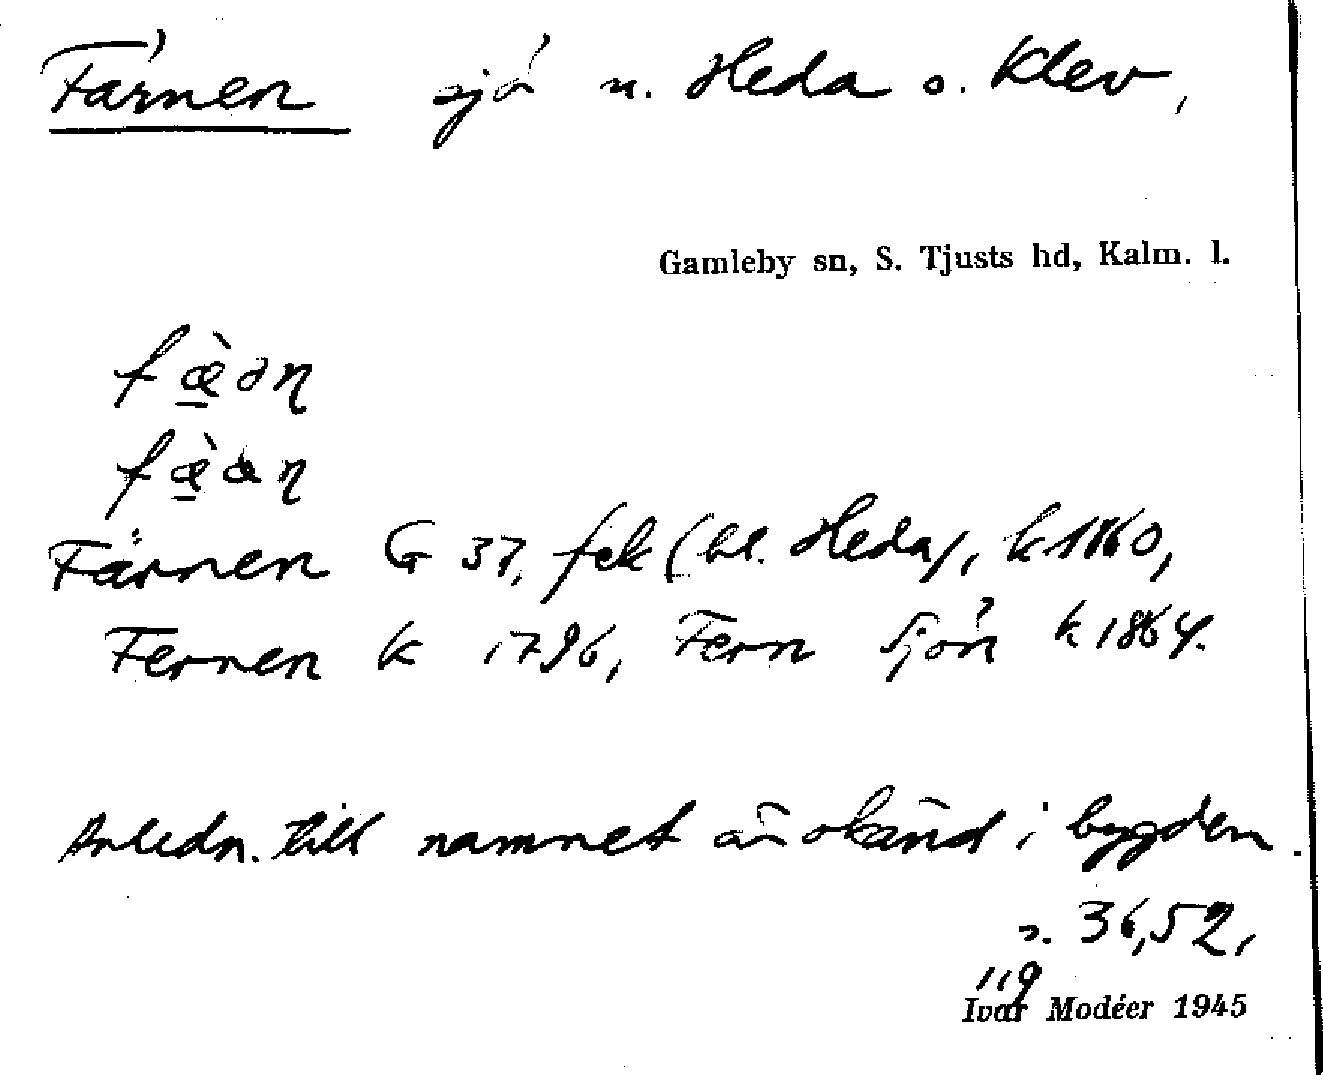 Färnen sjö n. Heda o. Klev,
Gamleby sn, S. Tjusts hd, Kalm. l.
fæ̀ən
fæ̀æn
Färnen G 37, fek (bl. Heda), k 1860,
Fernen k 1796, Fern Sjön k 1864.
Anledn. till namnet är okänd i bygden.
s. 36, 52,
119
Ivar Modéer 1945